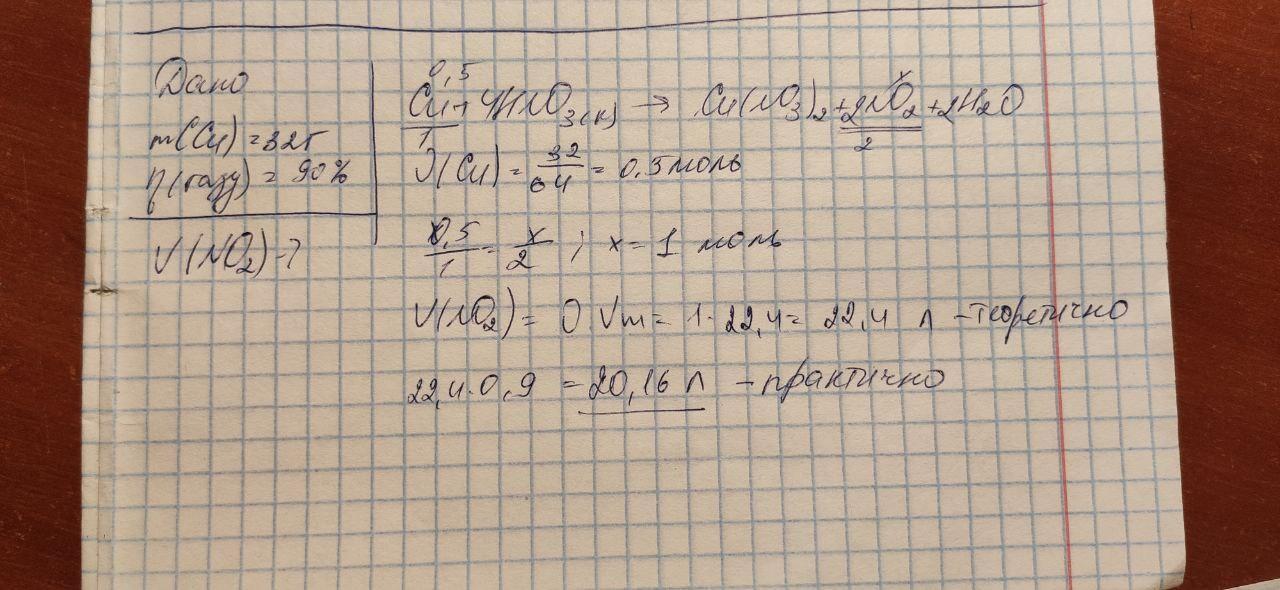 Дано
m(Cu) = 32г
η(газу) = 90%
V(NO2) - ?
0,5 x
Cu + 4HNO3(к) → Cu(NO3)2 + 2NO2 + 2H2O
1 2
ν(Cu) = 32/64 = 0,5 моль
0,5/1 = x/2 ; x = 1 моль
V(NO2) = ν·Vm = 1·22,4 = 22,4 л - теоретично
22,4·0,9 = 20,16 л - практично